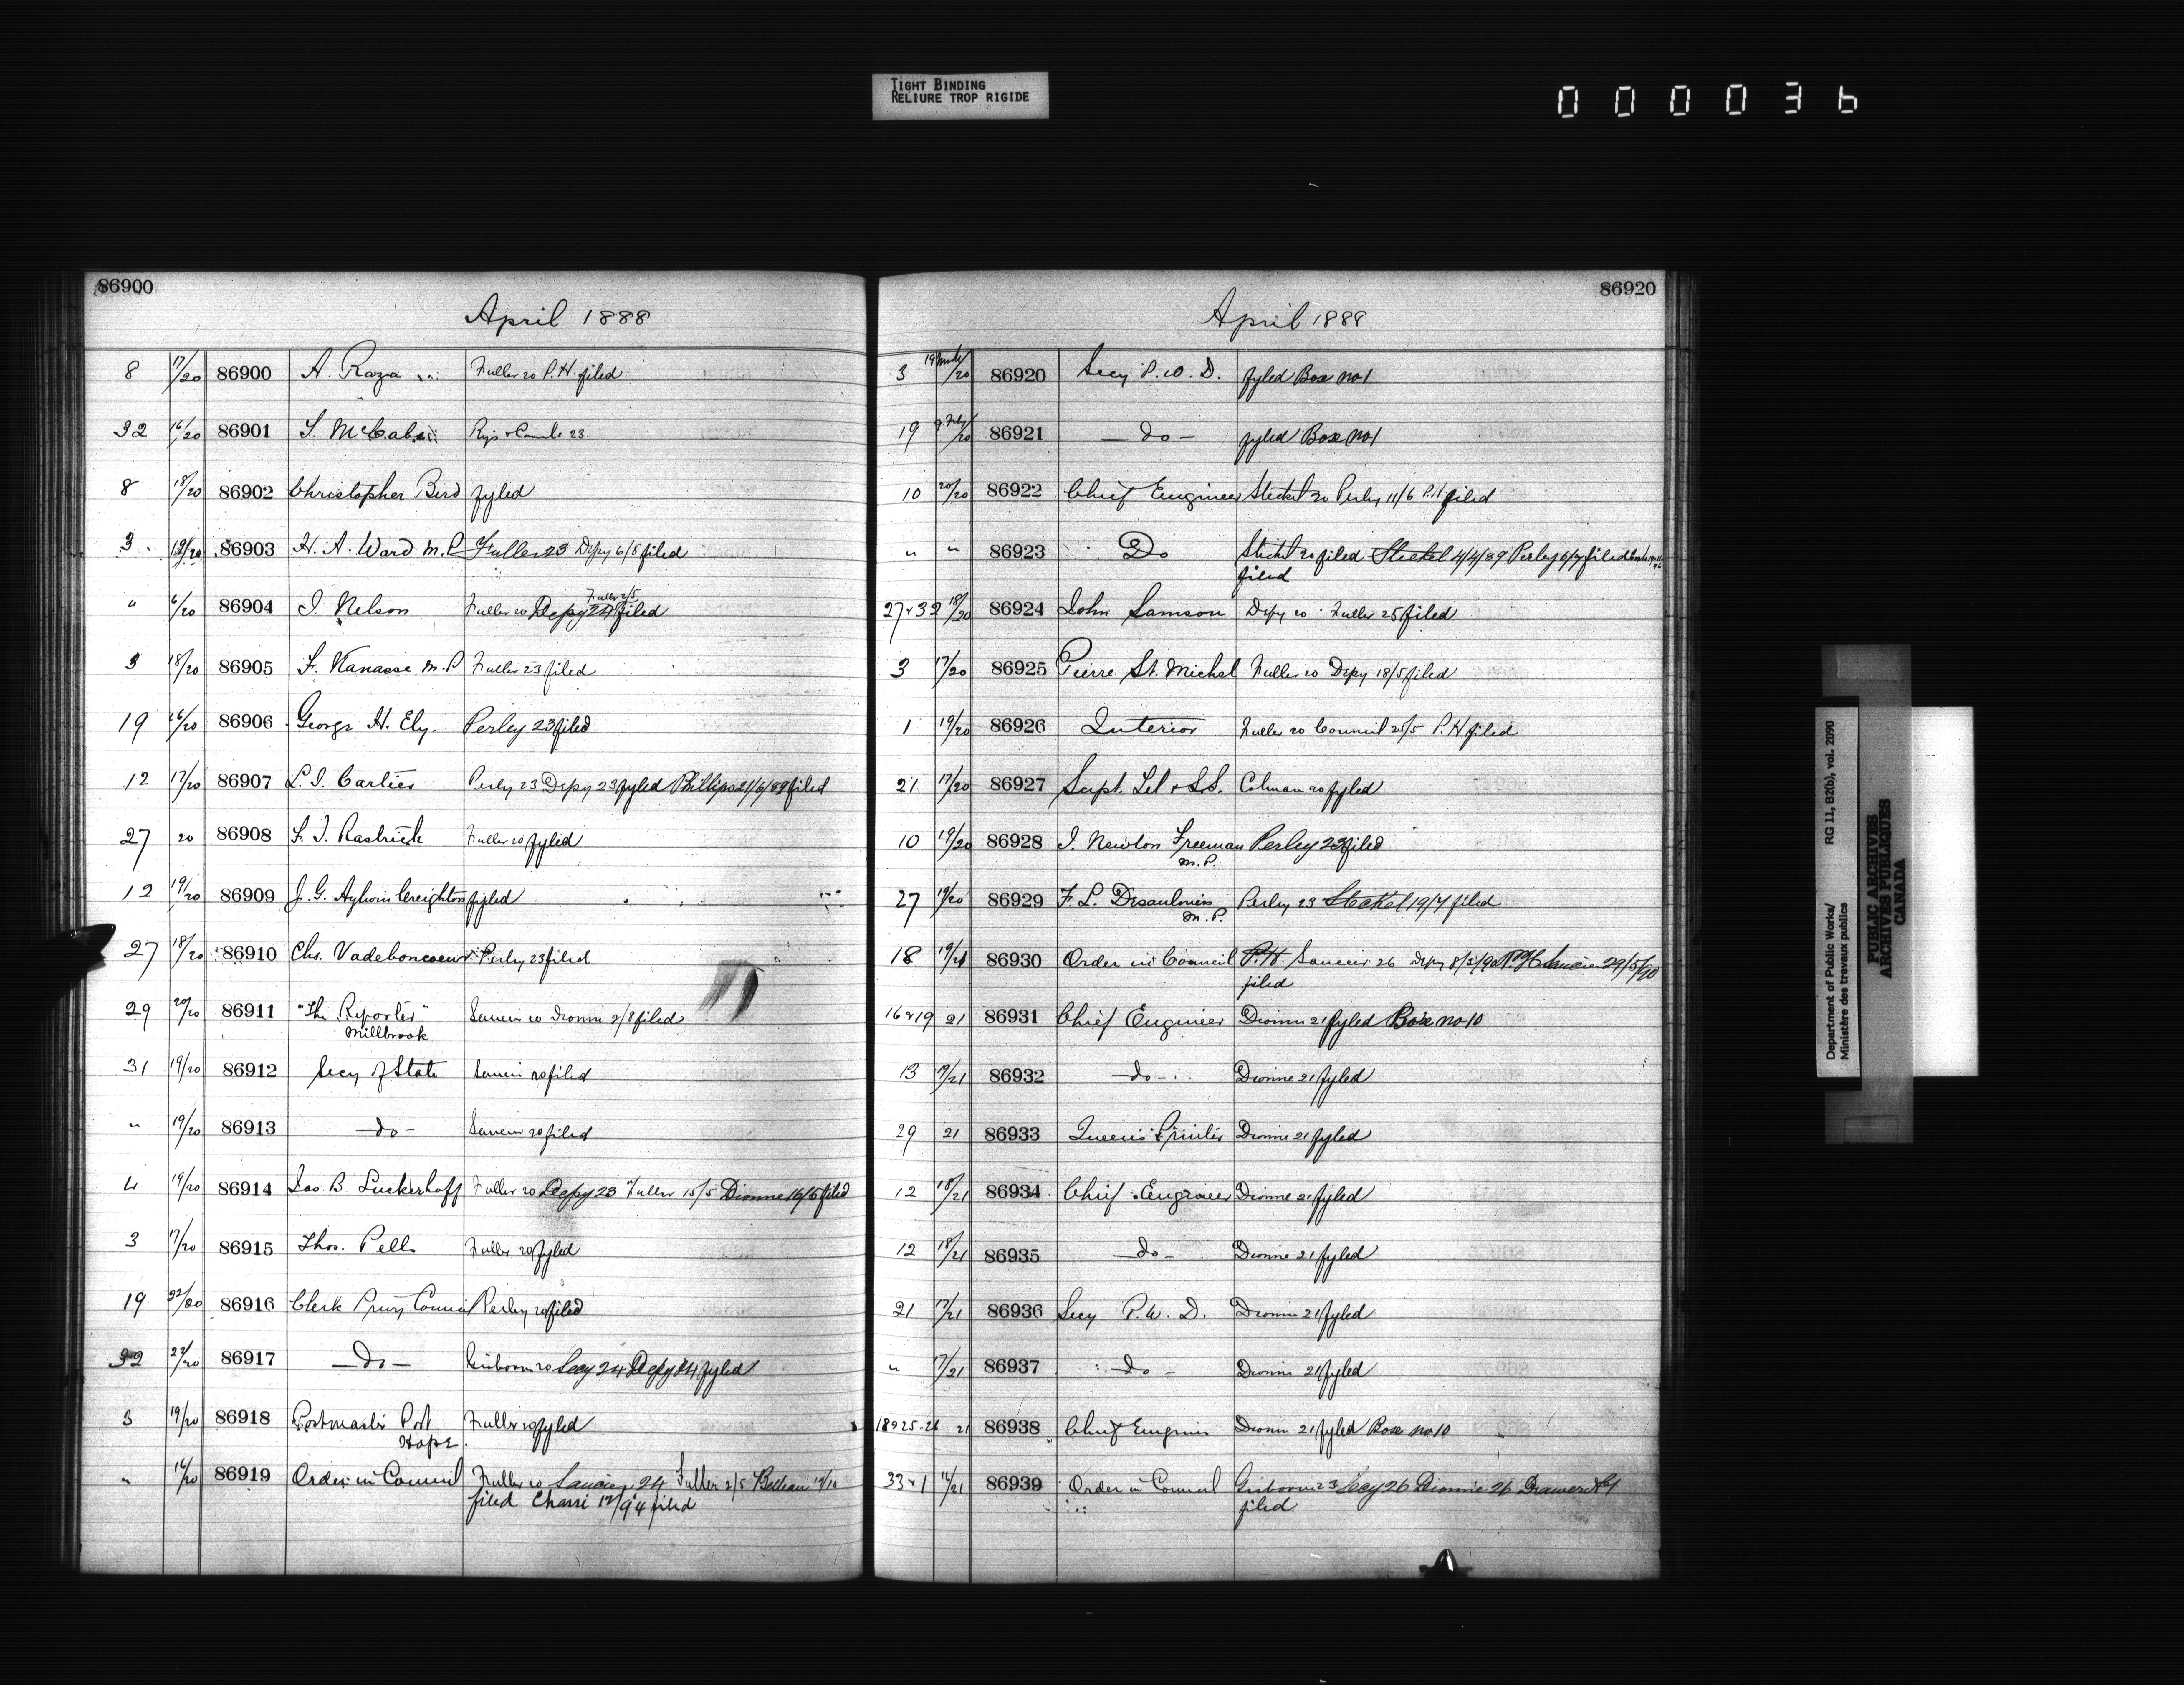 TIGHT BINDING
RELIURE TROP RIGIDE
000036
86900
April 1888
8 17/20 86900 A. Raza Fuller 20 P.H. filed
32 16/20 86901 S. McCabe 23
8 18/20 86902 Christopher Bird fyled
3 19/20 86903 H. A. Ward M.P. Fuller 23 Depy 6/8 filed
" 6/20 86904 J. Nelson Fuller 20 Depy 24 Fuller 2/5 filed
3 18/20 86905 F. Vanasse M.P. Fuller 23 filed
19 16/20 86906 George H. Ely. Perley 23 filed
12 17/20 86907 L. J. Cartier Perley 23 Depy 23 fyled Phillips 21/6/89 filed
27 20 86908 F. J. Rastrick Fuller 20 fyled
12 19/20 86909 J. G. Aylwin Creighton fyled
27 18/20 86910 Chs. Vadeboncoeur Perley 23 filed
29 20/20 86911 "The Reporter" Saucier 20 Dionne 2/8 filed
Millbrook
31 19/20 86912 Secy of State Saucier 20 filed
" 19/20 86913 — do — Saucier 20 filed
4 19/20 86914 Jas. B. Luckerhoff Fuller 20 Depy 23 Fuller 15/5 Dionne 16/5 filed
3 17/20 86915 Thos. Pells Fuller 20 fyled
19 86916 Clerk Privy Council Perley 20 filed
32 86917 — do — Gisborne 20 Secy 24 Depy 24 fyled
3 19/20 86918 Postmaster Port Fuller 20 fyled
Hope.
" 16/20 86919 Order in Council Fuller 20 Saucier 24 Fuller 2/5 Belleau
filed filed
86920
April 1888
3 86920 Secy P.W.D. fyled Box no 1
19 86921 — do — fyled Box no 1
10 20/20 86922 Chief Engineer Steckel 20 Perley 11/6 P.H filed
" " 86923 Do Steckel 20 filed Steckel 4/4/89 Perley 6/7 filed
filed
27 & 32 18/20 86924 John Samson Depy 20 Fuller 25 filed
3 17/20 86925 Pierre St. Michel Fuller 20 Depy 18/5 filed
1 19/20 86926 Interior Fuller 20 Council 25/5 P.H filed
21 17/20 86927 Supt. Tel & S.S. Colman 20 fyled
10 19/20 86928 J. Newton Freeman Perley 23 filed
M.P.
27 19/20 86929 F. L. Desaulniers Perley 23 Steckel 19/7 filed
M.P.
18 19/21 86930 Order in Council P.H. Saucier 26 Depy 8/3/90 P.H Saucier 29/5/90
filed
16 & 19 21 86931 Chief Engineer Dionne 21 fyled Box no 10
13 19/21 86932 — do — Dionne 21 fyled
29 21 86933 Queen's Printer Dionne 21 fyled
12 18/21 86934 Chief Engineer Dionne 21 fyled
12 18/21 86935 — do — Dionne 21 fyled
21 17/21 86936 Secy P.W.D. Dionne 21 fyled
" 17/21 86937 — do — Dionne 21 fyled
18 & 25-26 21 86938 Chief Engineer Dionne 21 fyled Box no 10
33 & 1 16/21 86939 Order in Council Gisborne 23 Secy 26 Dionne 26 Drawer
filed
Department of Public Works/ RG 11, B2(b), vol. 2090
Ministère des travaux publics
PUBLIC ARCHIVES
ARCHIVES PUBLIQUES
CANADA